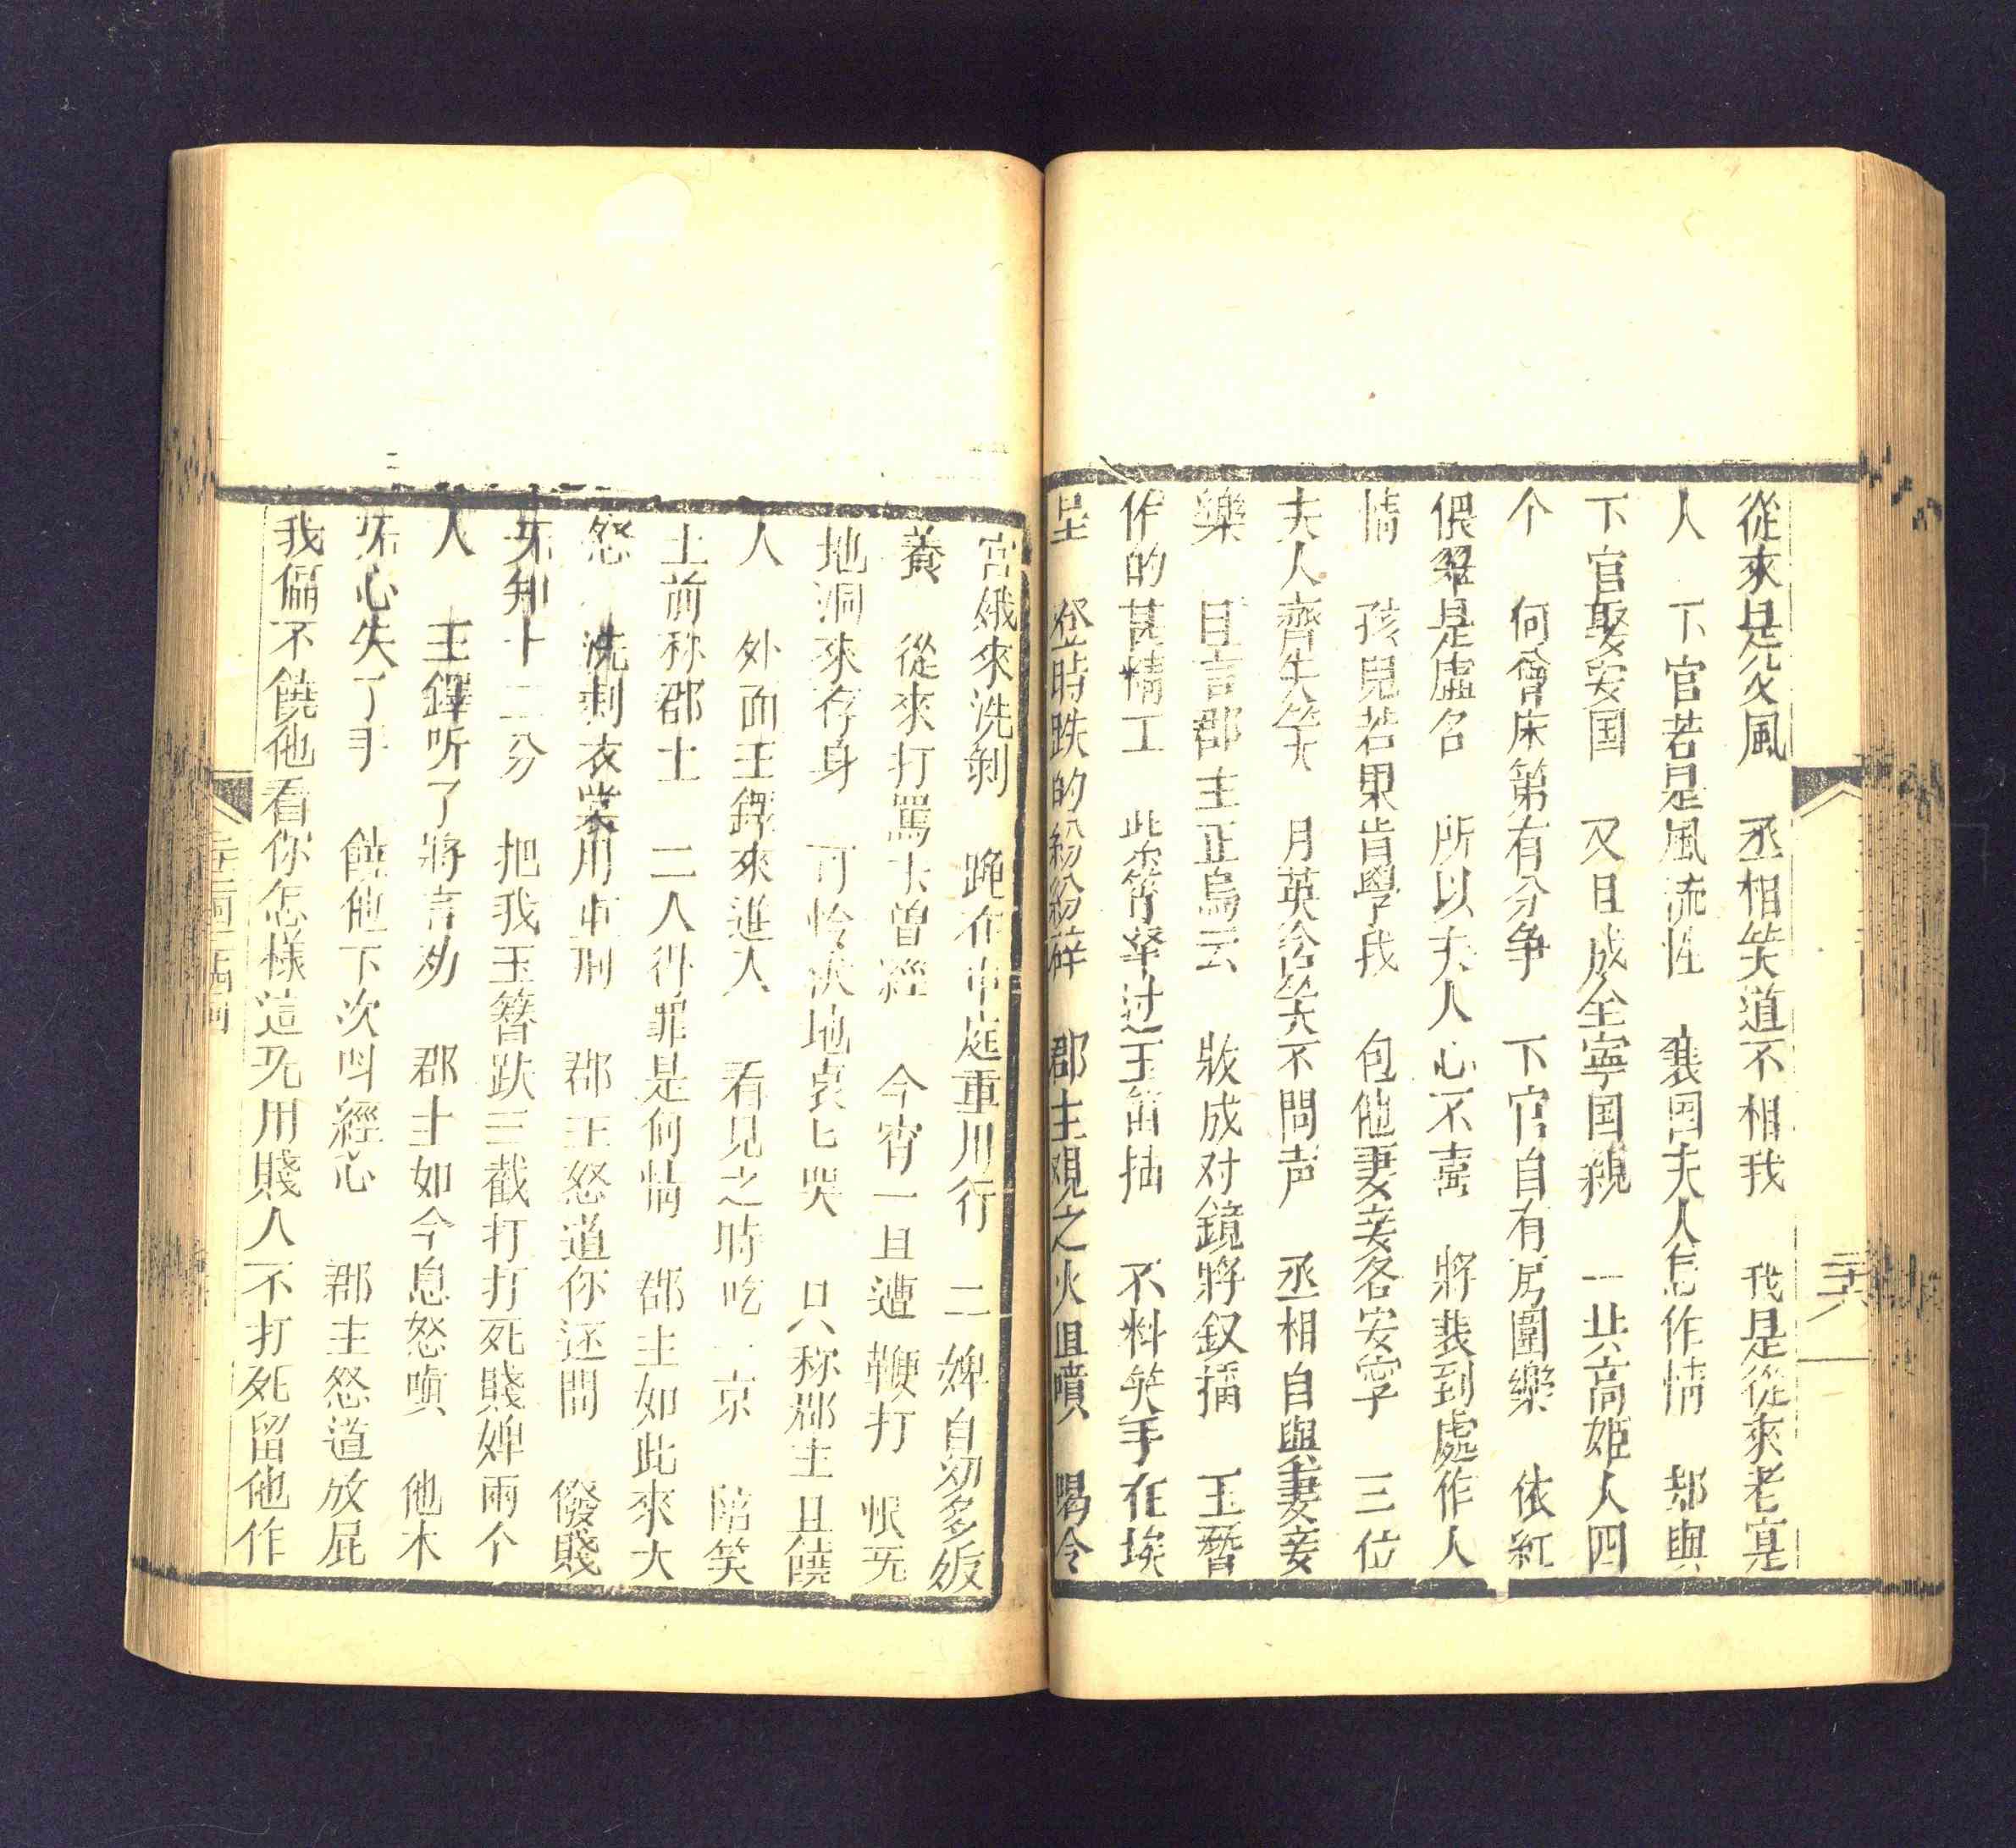 從來是父風　丞相笑道不相我　我是從來老寔
人　下官若是風流性　裴因夫人怎作情　却與
下官娶安国　又且成全寧国親　一共高姬人四
个　何曾床第有分争　下官自有房圍樂　依紅
偎翠是虛名　所以夫人心不喜　將裴到處作人
情　孩兒若果肯學我　包他妻妾各安寧　三位
夫人齊失笑　月英含笑不問声　丞相自與妻妾
樂　且言郡主正烏云　妝成对鏡將釵插　玉簪
作的甚情工　此宵拏过玉笛抽　不料笑手在埃
呈　登時跌的紛紛碎　郡主覌之火直噴　喝令
宮娥來洗剝　跪在中庭重用行　二婢自幼多姣
養　從來打罵未曾經　今宵一旦遭鞭打　恨无
地洞來存身　可怜滾地哀匕哭　只称郡主且饒
人　外面王鐸來進入　看見之時吃一京　陪笑
上前称郡主　二人得罪是何情　郡主如此來大
怒　洗剝衣裳用重刑　郡主怒道你还問　潑賤
无知十二分　把我玉簪跌三截打打死賤婢兩个
人　王鐸听了將言劝　郡主如今息怒嗔　他木
无心失了手　饒他下次呌經心　郡主怒道放屁
我偏不饒他看你怎樣這无用賤人不打死留他作